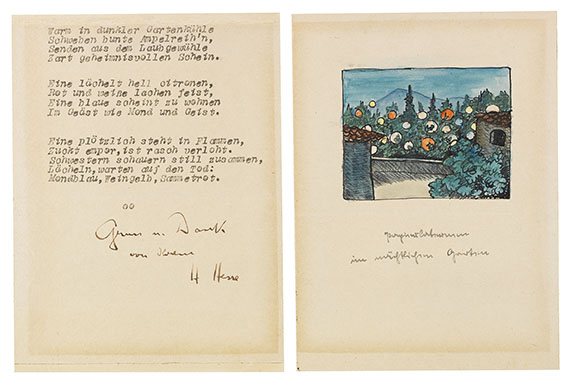 Warm in dunkler Gartenkühle
Schweben bunte Ampelreih'n,
Senden aus dem Laubgewühle
Zart geheimnisvollen Schein.
Eine lächelt hell zitronen,
Rot und weiße lachen feist,
Eine blaue scheint zu wohnen
Im Geäst wie Mond und Geist.
Eine plötzlich steht in Flammen,
Zuckt empor, ist rasch verloht.
Schwestern schauern still zusammen,
Lächeln, warten auf den Tod:
Mondblau, Weingelb, Sammetrot.
Gruss u. Dank
von Ihrem
H Hesse
Papierlaternen
im nächtlichen Garten